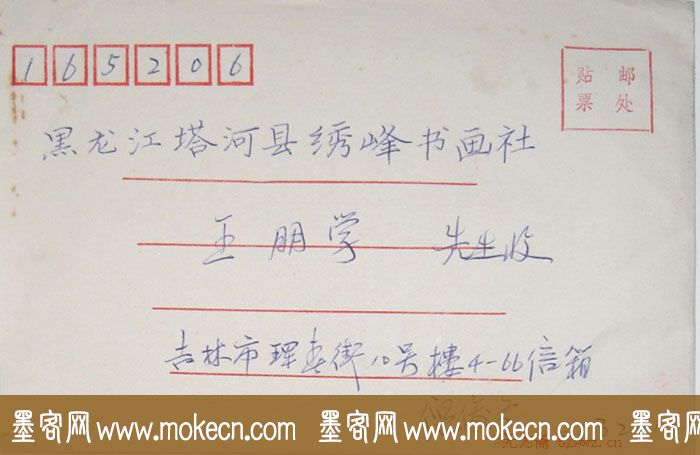 165206
贴邮
票处
黑龙江塔河县绣峰书画社
王朋学 先生收
吉林市珲春街10号楼4-66信箱
墨客网 www.mokecn.com 墨客网 www.mokecn.com